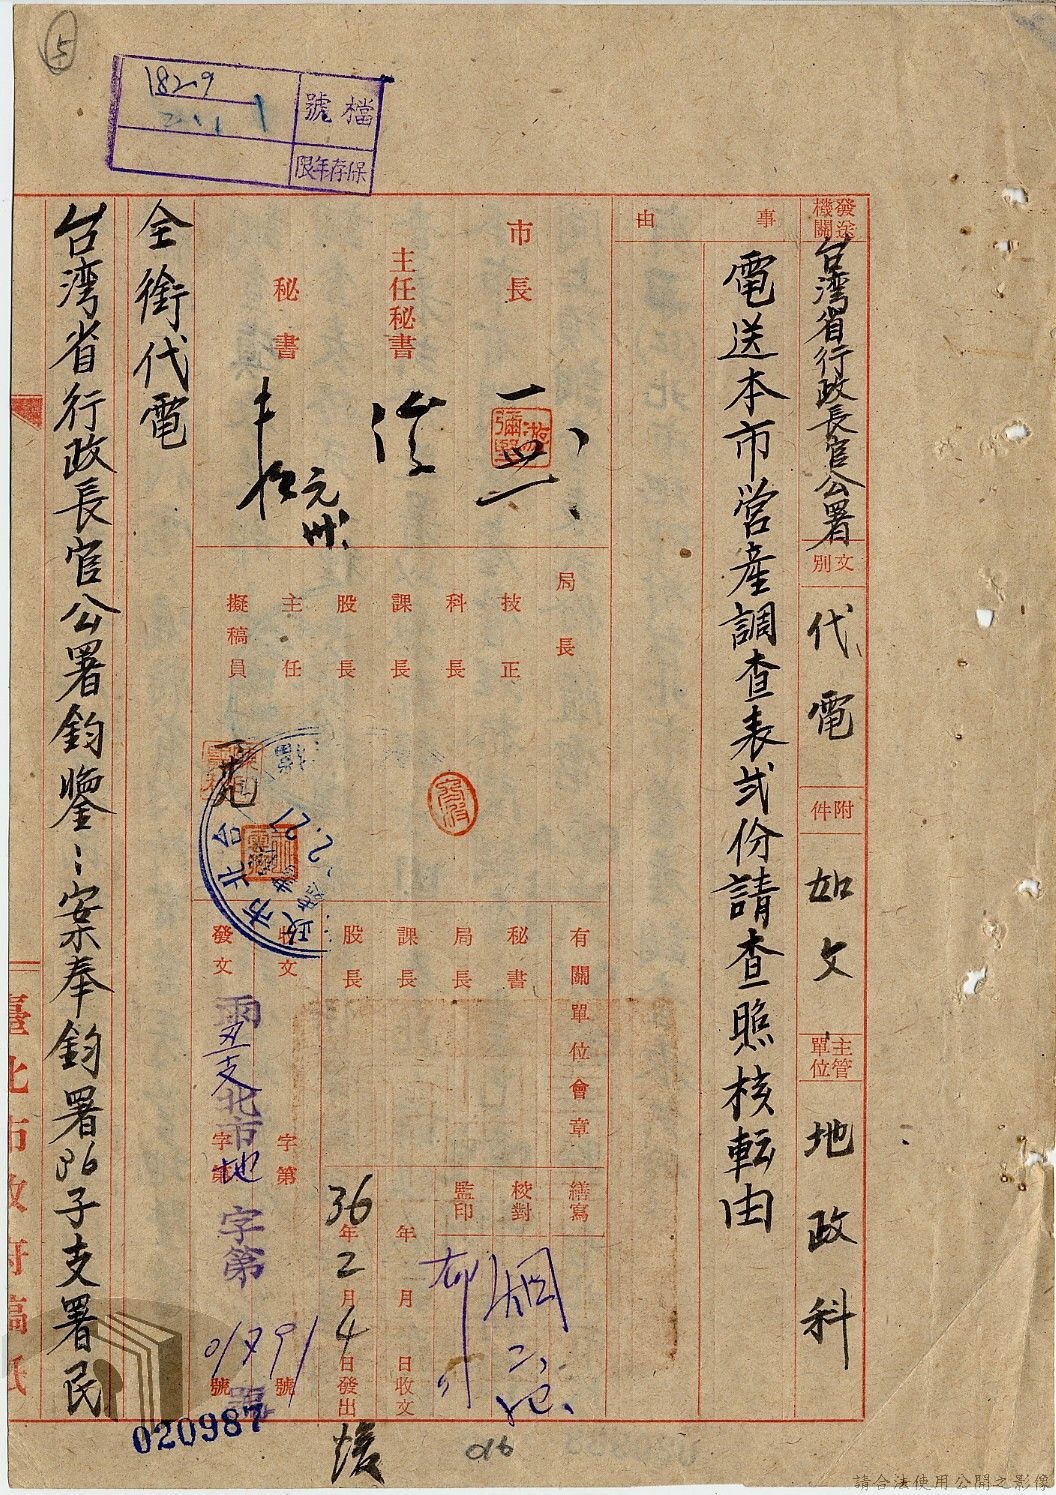 5
檔號
1829
保存年限
發送機關
台湾省行政長官公署
文別
代電
附件
如文
主管單位
地政科
事由
電送本市営産調查表弐份請查照核転由
市長
游彌堅
主任秘書
秘書
局長
技正
科長
課長
股長
主任
擬稿員
台北市政
2.21
有關單位會章
秘書
局長
課長
股長
收文
字第
號
發文
字第
號
北市地
字第
號
繕寫
校對
監印
年月日收文
36年2月4日發出
全銜代電
台湾省行政長官公署鈞鑒：案奉鈞署36子支署民
臺北市政府稿紙
020987
016
請合法使用公開之影像